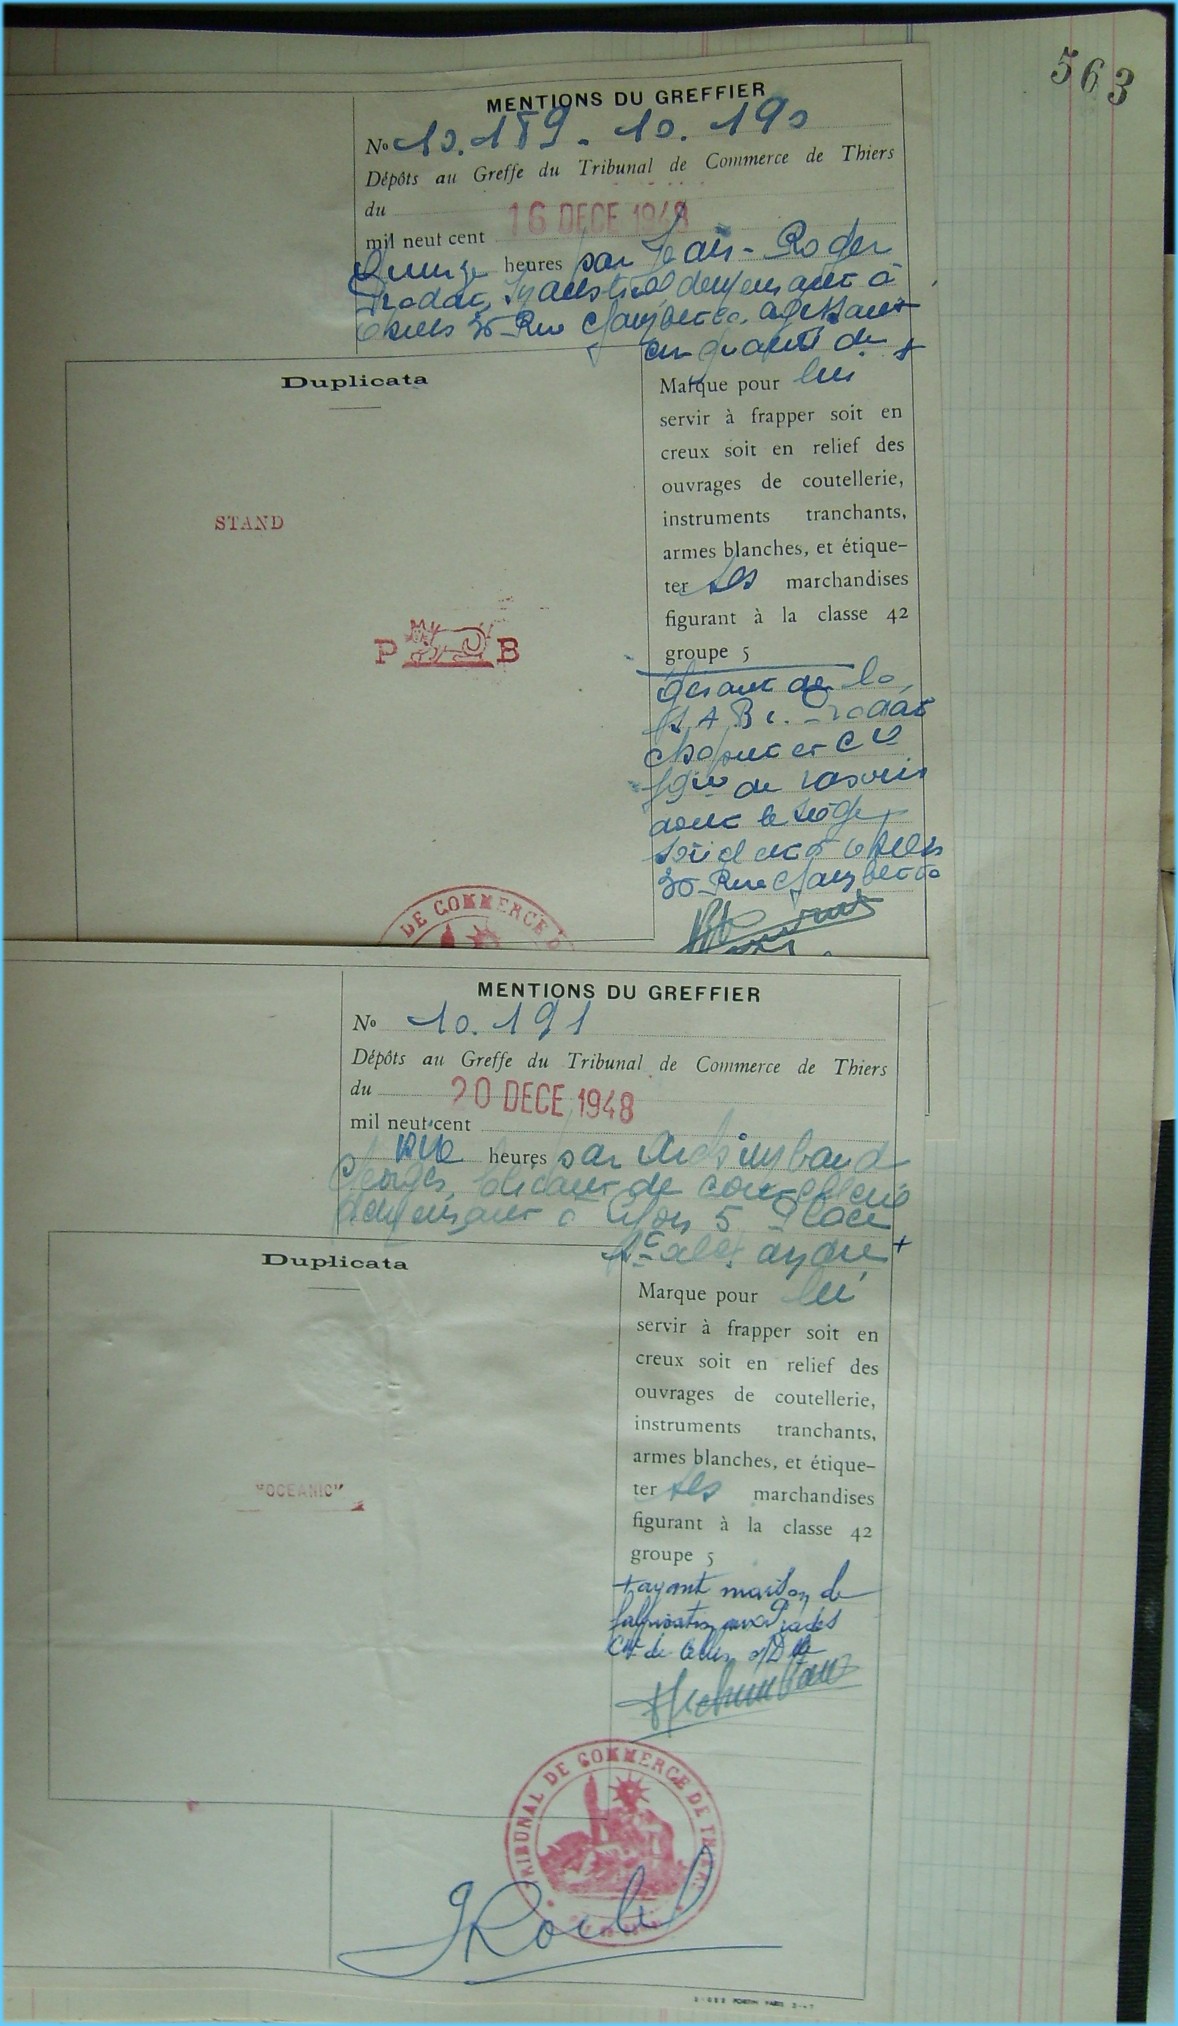 563
MENTIONS DU GREFFIER
No 10.189 - 10.190
Dépôts au Greffe du Tribunal de Commerce de Thiers
du
16 DECE 1948
mil neuf cent
Quinze heures par Jean-Roger
Prodat, Industriel demeurant à
Thiers 30 Rue Gambetta, agissant
en qualité de +
Duplicata
Marque pour lui
servir à frapper soit en
creux soit en relief des
ouvrages de coutellerie,
instruments tranchants,
armes blanches, et étique-
ter ses marchandises
figurant à la classe 42
groupe 5
STAND
P B
Gérant de la
S A R L. Prodat
et Cie
de rasoirs
dont le siège
social est à Thiers
30 Rue Gambetta
DE COMMERCE D
MENTIONS DU GREFFIER
No 10.191
Dépôts au Greffe du Tribunal de Commerce de Thiers
du
20 DECE 1948
mil neuf cent
heures par Archimbaud
Georges, fabricant de coutellerie
demeurant à Lyon 5 Place
St Alexandre +
Duplicata
Marque pour lui
servir à frapper soit en
creux soit en relief des
ouvrages de coutellerie,
instruments tranchants,
armes blanches, et étique-
ter ses marchandises
figurant à la classe 42
groupe 5
"OCEANIC"
+ ayant maison de
fabrication aux Prades
Cne de Celles s/D
Archimbaud
TRIBUNAL DE COMMERCE DE THIERS